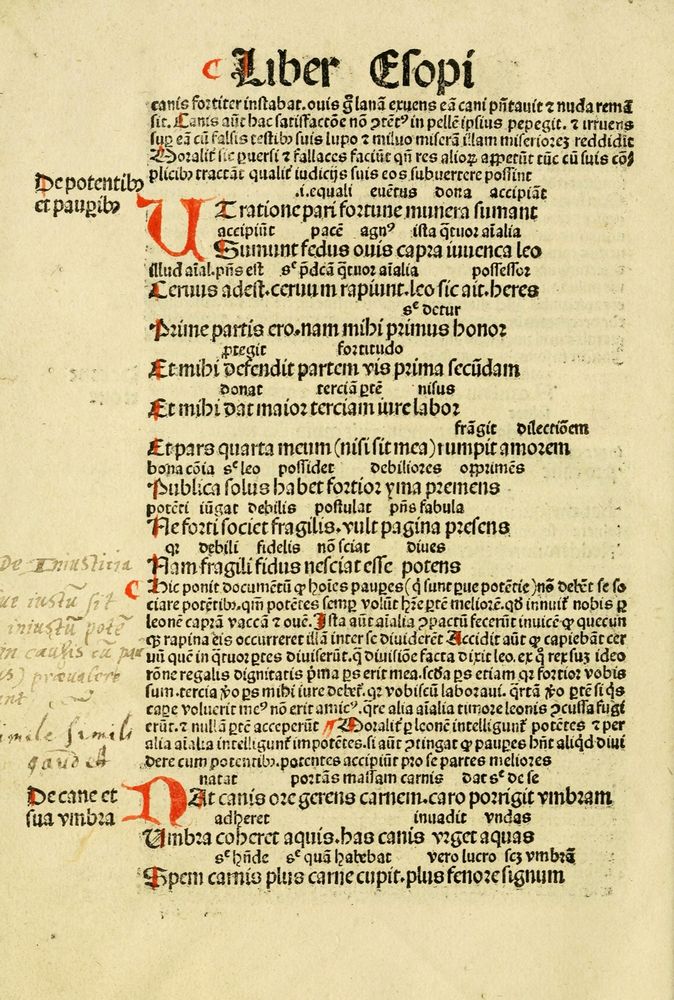 Liber Esopi
canis fortiter instabat. ouis g̃ lanã exuens eã cani p̃ntauit ⁊ nuda remã
sit. Canis aũt hac satisfactõe nõ ꝯtẽtꝰ in pellẽ ipsius pepegit. ⁊ irruens
suꝑ eã cũ falsis testibꝫ suis lupo ⁊ miluo miserã illam miseriorez reddidit
Moralit̃ sic ꝑuersi ⁊ fallaces faciũt qñ res alioꝝ appetũt tũc cũ suis cõ
plicibꝫ tractãt qualit̃ iudicijs suis eos subuertere possint
De potentibꝫ
et pauꝑibꝫ
.i. equali euẽtus dona accipiãt
UT ratione pari fortune munera sumant
accipiũt pacẽ agnꝰ ista q̃tuor aĩalia
Sumunt fedus ouis capra iuuenca leo
illud aĩal. p̃ns est sᶜ p̃dcã q̃tuor aĩalia possessor
Ceruus adest. ceruum rapiunt. leo sic ait. heres
sᶜ detur
Prime partis ero. nam mihi primus honor
ꝓtegit fortitudo
Et mihi defendit partem vis prima secũdam
donat terciã ꝑtẽ nisus
Et mihi dat maior terciam iure labor
frãgit dilectiõem
Et pars quarta meum (nisi sit mea) rumpit amorem
bona cõia sᶜ leo possidet debiliores opprimẽs
Publica solus habet fortior yma premens
potẽti iũgat debilis postulat p̃ns fabula
Ne forti societ fragilis. vult pagina presens
qꝛ debili fidelis nõ sciat diues
Nam fragili fidus nesciat esse potens
Hic ponit documẽtũ ꝙ hoĩes pauꝑes (q̃ sunt ꝑue potẽtie) nõ debẽt se so
ciare potẽtibꝫ. qm̃ potẽtes semꝑ volũt h̃re ꝑtẽ meliorẽ. qd̃ innuit̃ nobis ꝑ
leonẽ caprã vaccã ⁊ ouẽ. Ista aũt aĩalia ꝯpactũ fecerũt inuicẽ ꝙ quecun
qꝫ rapina eis occurreret illãm inter se diuiderẽt Accidit aũt ꝙ capiebãt cer
uũ quẽ in q̃tuor ꝑtes diuiserũt. q̃ diuisiõe facta dixit leo. ex q̃ rex suꝫ ideo
rõne regalis dignitatis p̃ma ꝑs erit mea. scđa ꝑs etiam qꝛ fortior vobis
sum. tercia ṽo ꝑs mihi iure debet̃. qꝛ vobiscũ laboraui. q̃rtã ṽo ꝑtẽ si q̃s
capere voluerit meꝰ nõ erit amicꝰ. q̃re alia aĩalia timore leonis ꝯcussa fugi
erũt. ⁊ nullã ꝑtẽ acceperũt Moralit̃ ꝑ leonẽ intelligunt̃ potẽtes ⁊ per
alia aĩalia intelligunt̃ impotẽtes. si aũt ꝯtingat ꝙ pauꝑes hñt aliqđ diui
dere cum potentibꝫ. potentes accipiũt pro se partes meliores
De Iniustitia
iustũ sit
iniustũ potẽ
m causis
præualere
simile simili
gaudet
De cane et
sua vmbra
natat portãs massam carnis dat sᶜ de se
NAt canis ore gerens carnem. caro porrigit vmbram
adheret inuadit vndas
Umbra coheret aquis. has canis vrget aquas
sᶜ hñde sᶜ quã habebat vero lucro scꝫ vmbrã
Spem carnis plus carne cupit. plus fenore signum